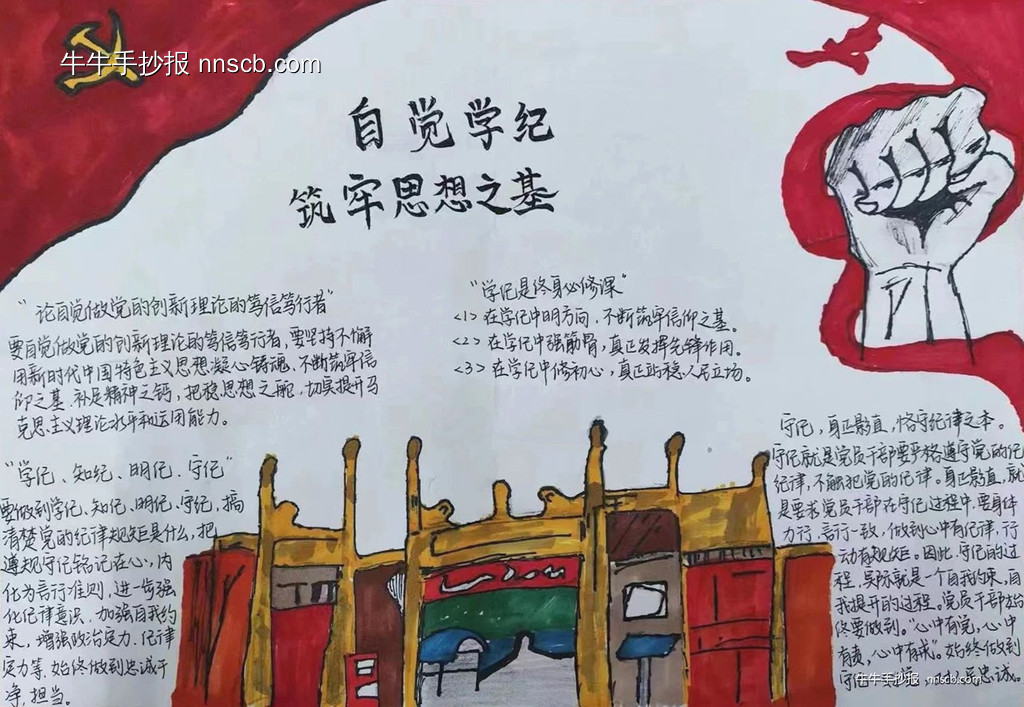 牛牛手抄报 nnscb.com
自觉学纪
筑牢思想之基
"论自觉做党的创新理论的笃信笃行者"
要自觉做党的创新理论的笃信笃行者，要坚持不懈
用新时代中国特色主义思想凝心铸魂，不断筑牢信
仰之基、补足精神之钙，把稳思想之舵，切实提升马
克思主义理论水平和运用能力。
"学纪是终身必修课"
<1> 在学纪中明方向，不断筑牢信仰之基。
<2> 在学纪中强筋骨，真正发挥先锋作用。
<3> 在学纪中修初心，真正站稳人民立场。
"学纪、知纪、明纪、守纪"
要做到学纪、知纪、明纪、守纪，搞
清楚党的纪律规矩是什么，把
遵规守纪铭记在心，内
化为言行准则，进一步强
化纪律意识、加强自我约
束，增强政治定力、纪律
定力等，始终做到忠诚干
净，担当。
守纪，身正影直，恪守纪律之本。
守纪就是党员干部要严格遵守党的纪
纪律，不触犯党的纪律。身正影直，就
是要求党员干部在守纪过程中，要身体
力行、言行一致，做到心中有纪律，行
动有规矩。因此，守纪的过
程，实际就是一个自我约束，自
我提升的过程。党员干部始
终要做到。"心中有党，心中
有责，心中有戒"。始终做到
牛牛手抄报 nnscb.com